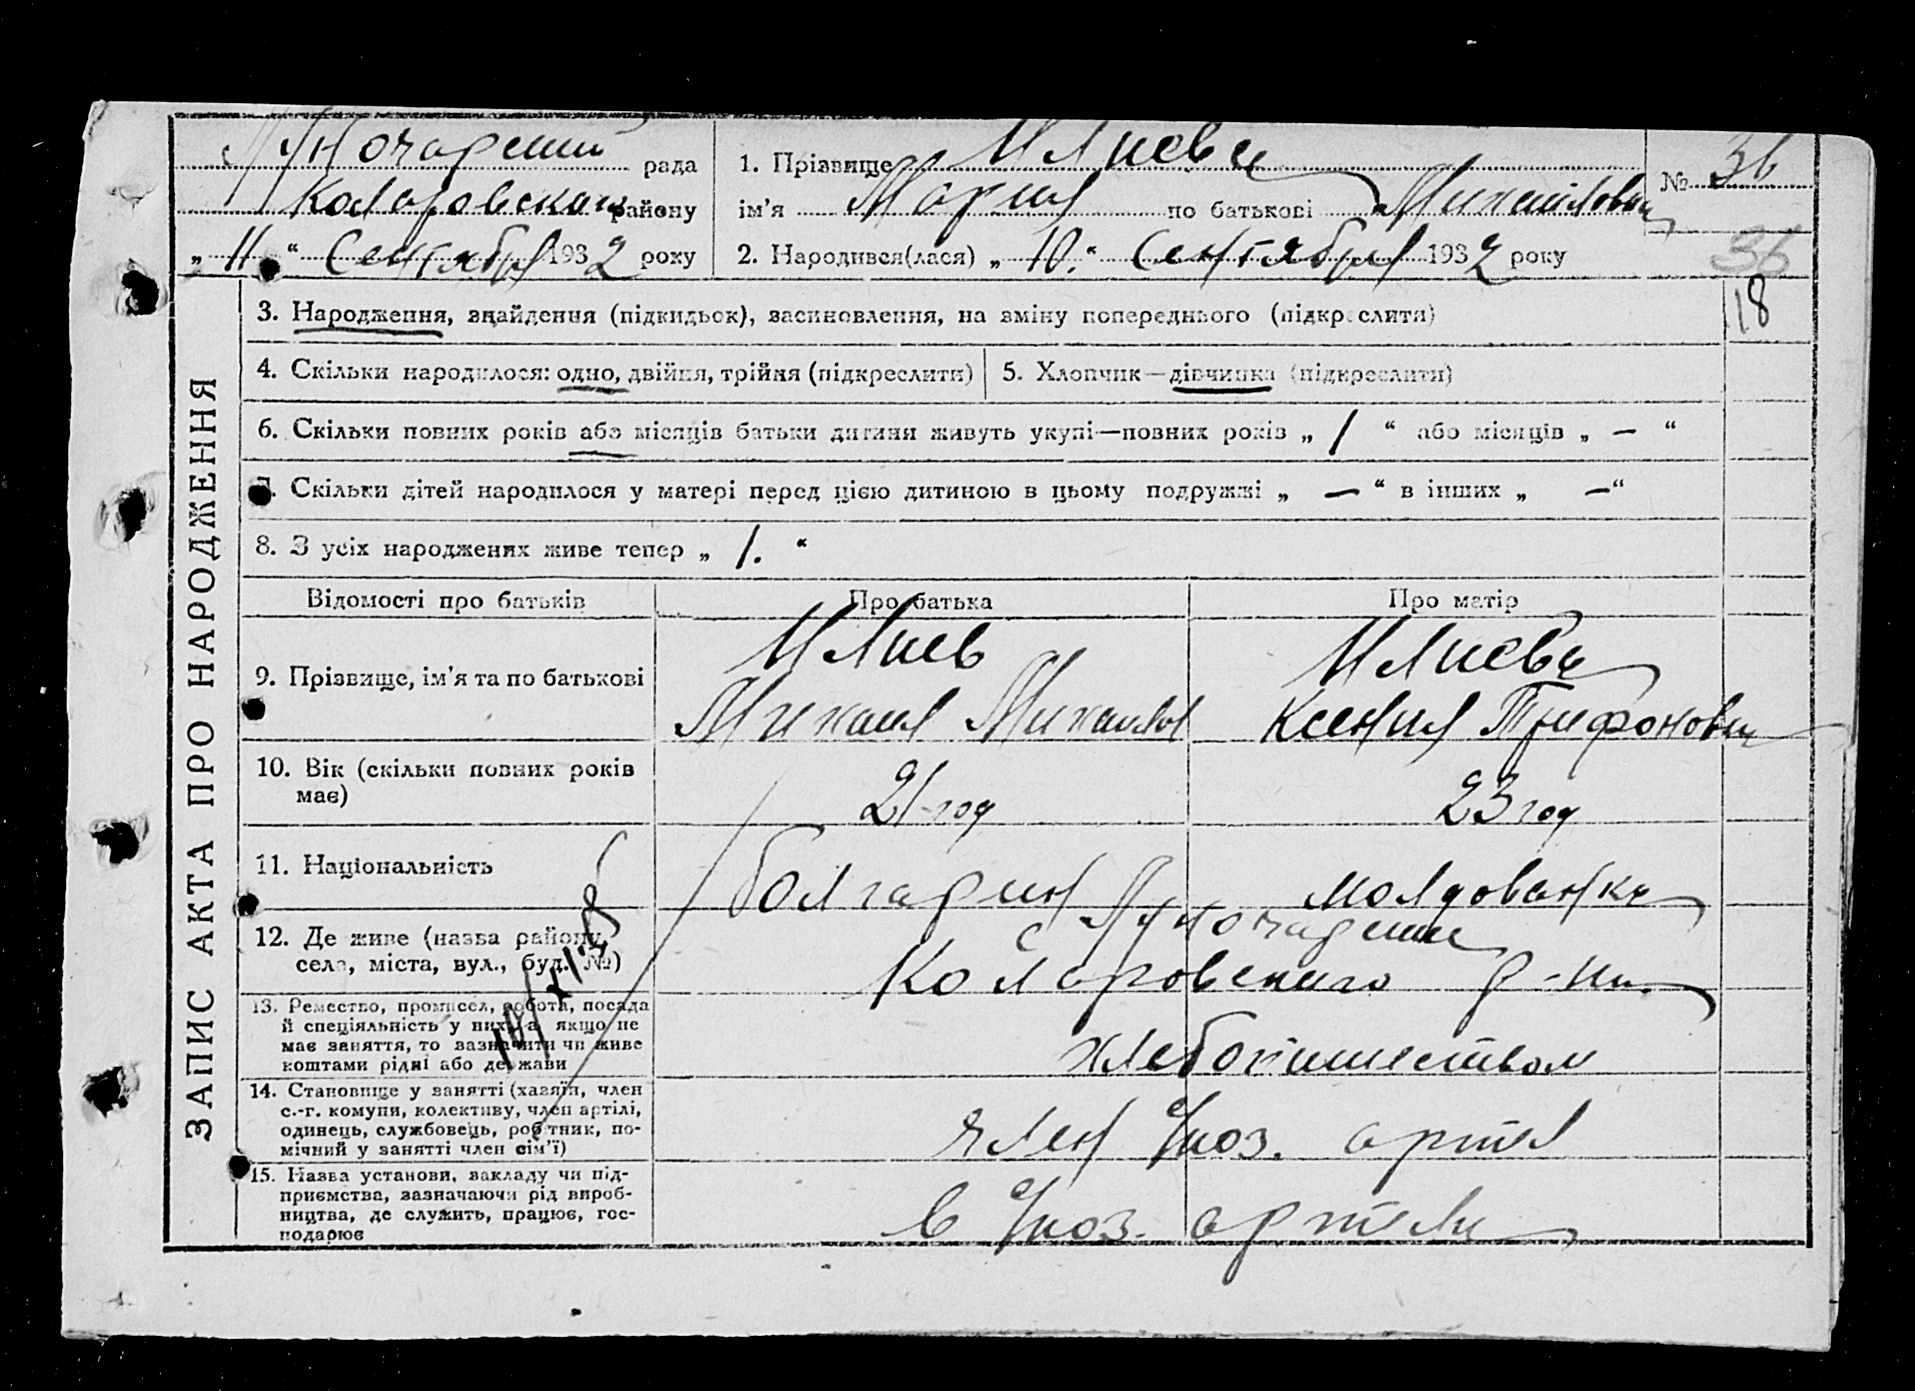 Луночарский рада
Коларовского району
„ 11 “ Сентября 1932 року
1. Прізвище Илиева
ім'я Мария по батькові Михайловна
2. Народився(лася) „ 10. “ Сентября 1932 року
№ 36
36
18
ЗАПИС АКТА ПРО НАРОДЖЕННЯ
3. Народження, знайдення (підкидьок), засиновлення, на зміну попереднього (підкреслити)
4. Скільки народилося: одно, двійня, трійня (підкреслити)
5. Хлопчик—дівчинка (підкреслити)
6. Скільки повних років або місяців батьки дитини живуть укупі—повних років „ 1 “ або місяців „ — “
7. Скільки дітей народилося у матері перед цією дитиною в цьому подружжі „ — “ в інших „ — “
8. З усіх народжених живе тепер „ 1. “
Відомості про батьків
Про батька
Про матір
9. Прізвище, ім'я та по батькові
Илиев
Михаил Михайлов
Илиева
Ксения Трифоновна
10. Вік (скільки повних років
має)
21 год
23 год
11. Національність
болгарин
молдованка
12. Де живе (назва району,
села, міста, вул., буд. №)
с Луночарские
Коларовского р-на
13. Ремество, промисел, робота, посада
й спеціяльність у них, а якщо не
має заняття, то зазначити чи живе
коштами рідні або держави
хлебопашеством
14. Становище у занятті (хазяїн, член
с.-г. комуни, колективу, член артілі,
одинець, службовець, робітник, по-
мічний у занятті член сім'ї)
член артел
15. Назва установи, закладу чи під-
приємства, зазначаючи рід вироб-
ництва, де служить, працює, гос-
подарює
в артели